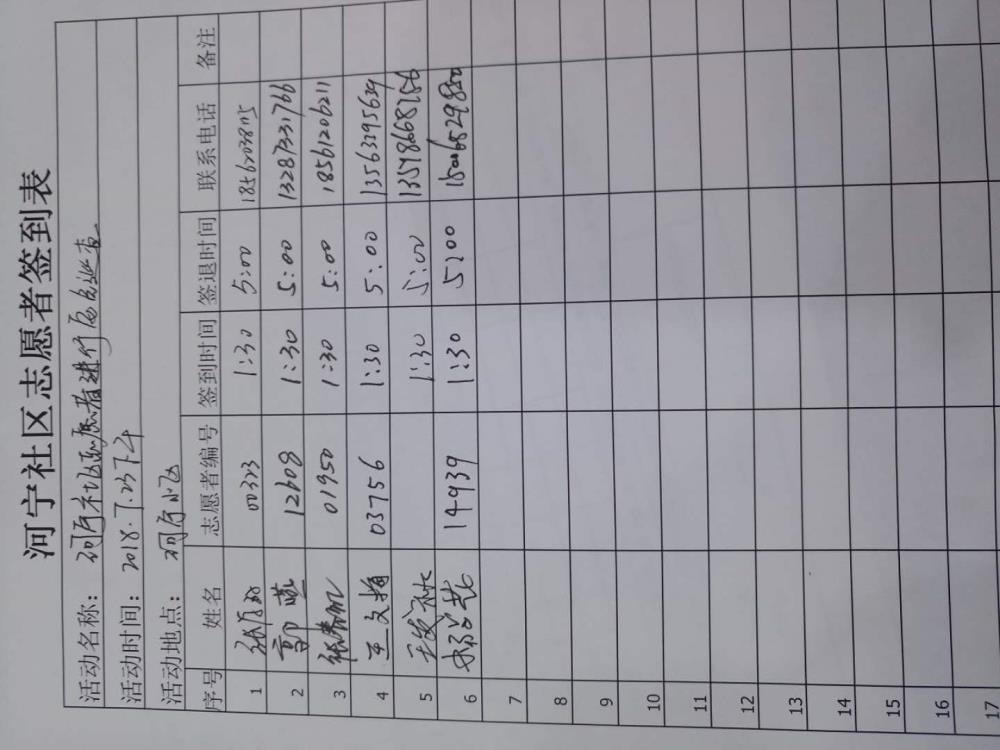 河宁社区志愿者签到表
活动名称：河宁社区志愿者进行
活动时间：2018.7.23下午
活动地点：河宁小区
序号 姓名 志愿者编号 签到时间 签退时间 联系电话 备注
1 00323 1:30 5:00
2 郭 12608 1:30 5:00 13287331766
3 张 01950 1:30 5:00 18561206211
4 王文梅 03756 1:30 5:00 13563295639
5 1:30 5:00
6 14939 1:30 5:00
7
8
9
10
11
12
13
14
15
16
17